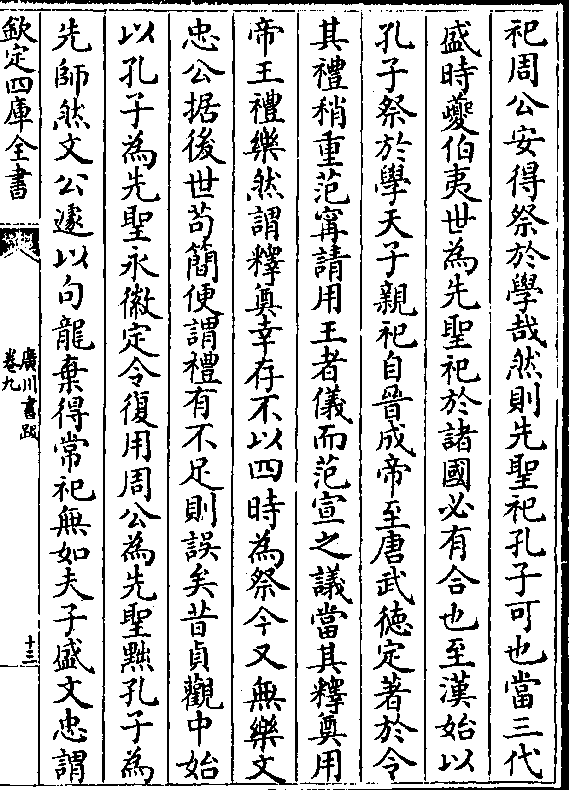 祀周公安得祭於學哉然則先聖祀孔子可也當三代
盛時夔伯夷世為先聖祀於諸國必有合也至漢始以
孔子祭於學天子親祀自晉成帝至唐武徳定著於令
其禮稍重范甯請用王者儀而范宣之議當其釋奠用
帝王禮樂然謂釋奠幸存不以四時為祭今又無樂文
忠公据後世苟簡便謂禮有不足則誤矣昔貞觀中始
以孔子為先聖永徽定令復用周公為先聖黜孔子為
先師然文公遽以句龍棄得常祀無如夫子盛文忠謂
欽定四庫全書
廣川書跋
卷九
十三